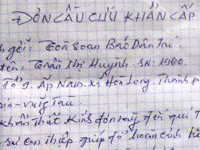 ĐƠN CẦU CỨU KHẨN CẤP
gởi: Tòa soạn Báo Dân Trí
tên: Trần Thị Huỳnh. SN: 1960.
Tổ 9. Ấp Nam. xã Hòa Long. Thành p
rịa - vũng Tàu
khẩn thiết kính đơn này đến quí T
sự can thiệp giúp đỡ hoàn cảnh